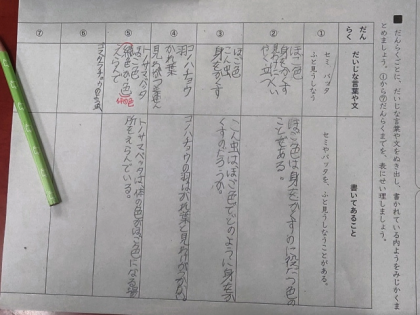 ■ だんらくごとに、だいじな言葉や文をぬき出し、書かれている内ようをみじかくま
とめましょう。①から⑦だんらくまでを、表にせい理しましょう。
だん
らく
だいじな言葉や文
書いてあること
①
セミ、バッタ
ふと見うしなう
セミやバッタを、ふと見うしなうことがある。
②
ほご色
身をかくす
役に立つ
ほご色は身をかくすのに役だつ色の
ことである。
③
ほご色
こん虫
身をかくす
こん虫はほご色でどのように身をか
くすのだろうか。
④
コノハチョウ
羽
かれ葉
コノハチョウの羽はかれ葉と見わけがつかない
⑤
トノサマバッタ
ほご色
えらんで
トノサマバッタは自分の色がほご色になる場
所をえらんでいる。
⑥
⑦